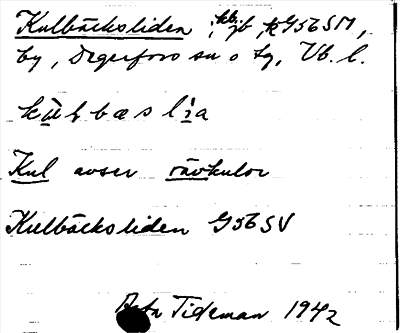 Kulbäcksliden, jb, k G56SM,
by, Degerfors sn o tg, Vb. l.
kʉ̀lbæslìa
Kul avser rävkulor
Kulbäcksliden G56SV
Asta Tideman 1942